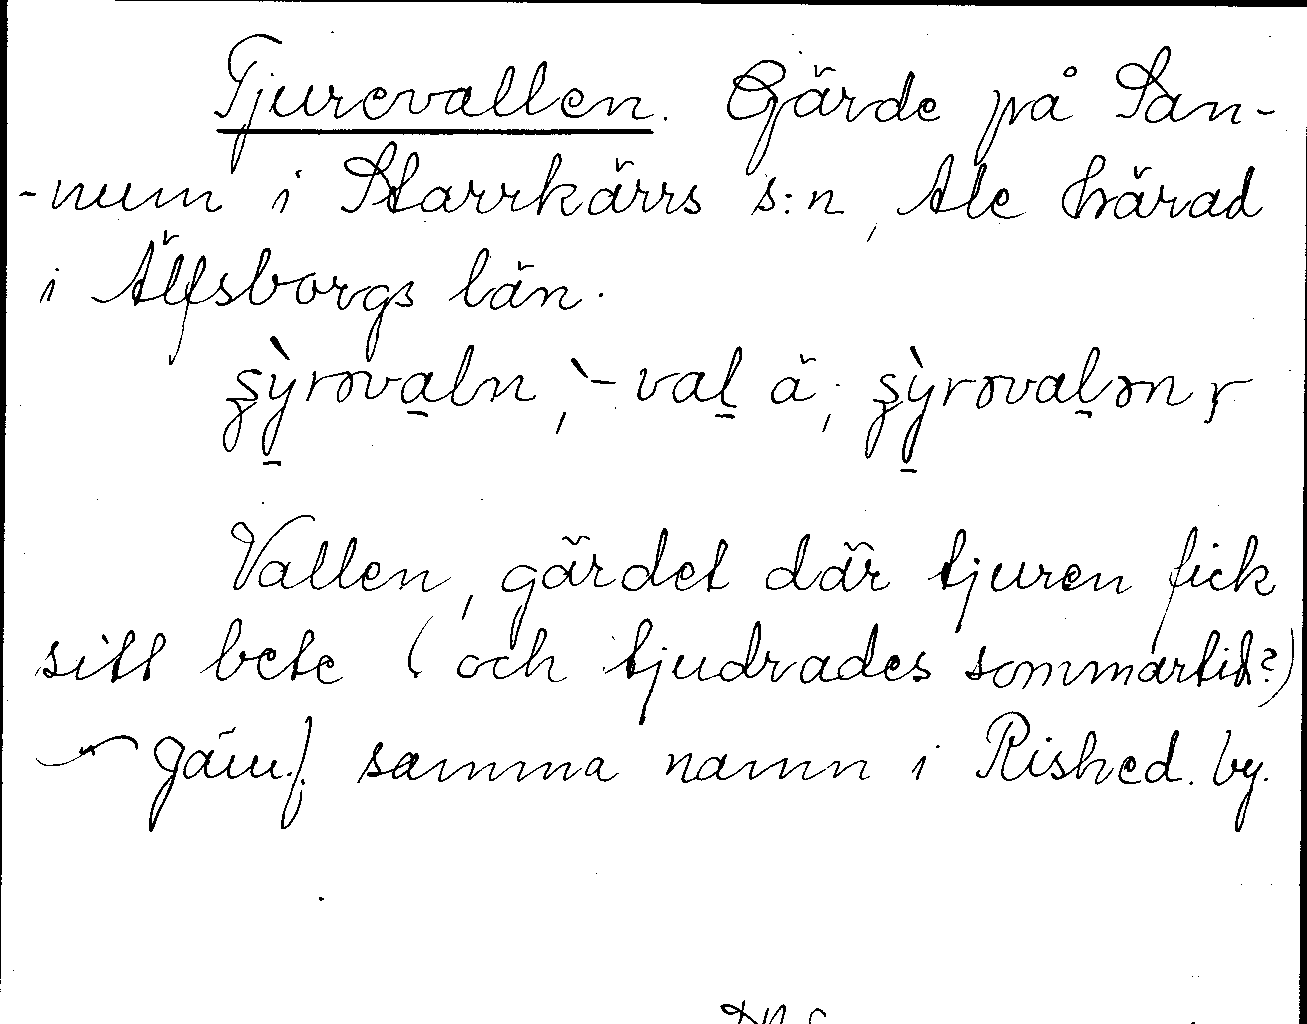 Tjurevallen. Gärde på San-
-num i Starrkärrs s:n, Ale härad
i Älfsborgs län.
ʂỳrəvaln, `-val ä; ʂỳrəvalən,
Vallen, gärdet där tjuren fick
sitt bete (och tjudrades sommartid?)
Jämf. samma namn i Rished. by.